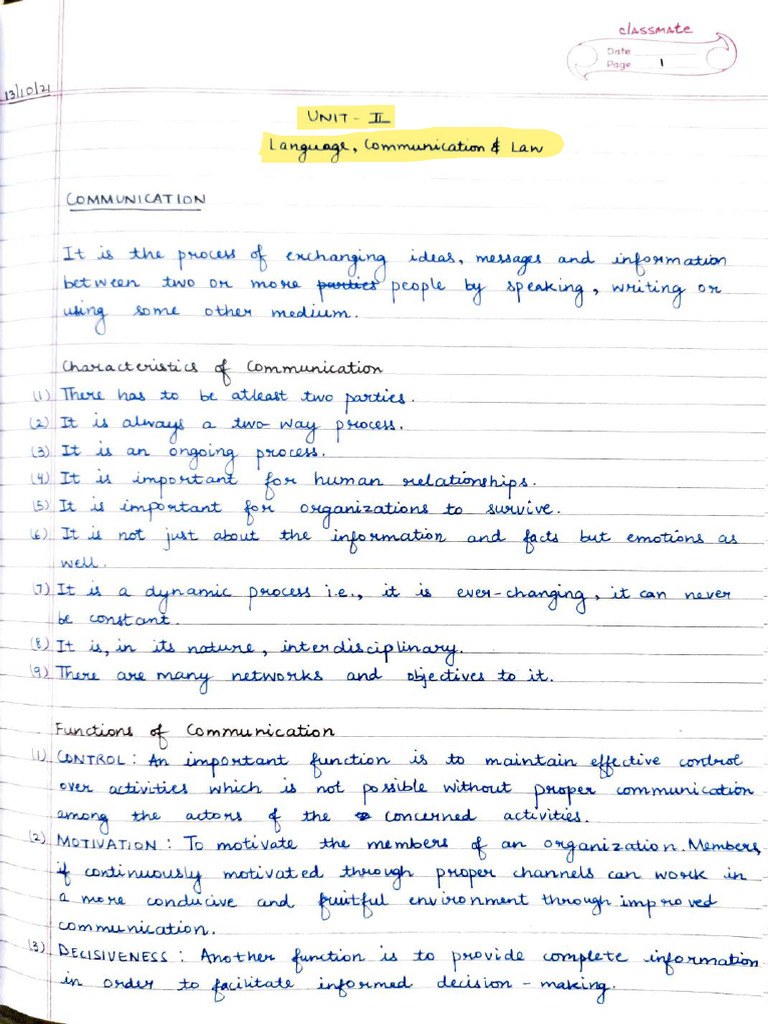 classmate
Date
Page 1
13/10/21
UNIT - II
Language, Communication & Law
COMMUNICATION
It is the process of exchanging ideas, messages and information
between two or more parties people by speaking, writing or
using some other medium.
Characteristics of Communication
(1) There has to be atleast two parties.
(2) It is always a two-way process.
(3) It is an ongoing process.
(4) It is important for human relationships.
(5) It is important for organizations to survive.
(6) It is not just about the information and facts but emotions as
well.
(7) It is a dynamic process i.e., it is ever-changing, it can never
be constant.
(8) It is, in its nature, interdisciplinary.
(9) There are many networks and objectives to it.
Functions of Communication
(1) CONTROL : An important function is to maintain effective control
over activities which is not possible without proper communication
among the actors of the concerned activities.
(2) MOTIVATION : To motivate the members of an organization. Members,
if continuously motivated through proper channels can work in
a more conducive and fruitful environment through improved
communication.
(3) DECISIVENESS : Another function is to provide complete information
in order to facilitate informed decision - making.